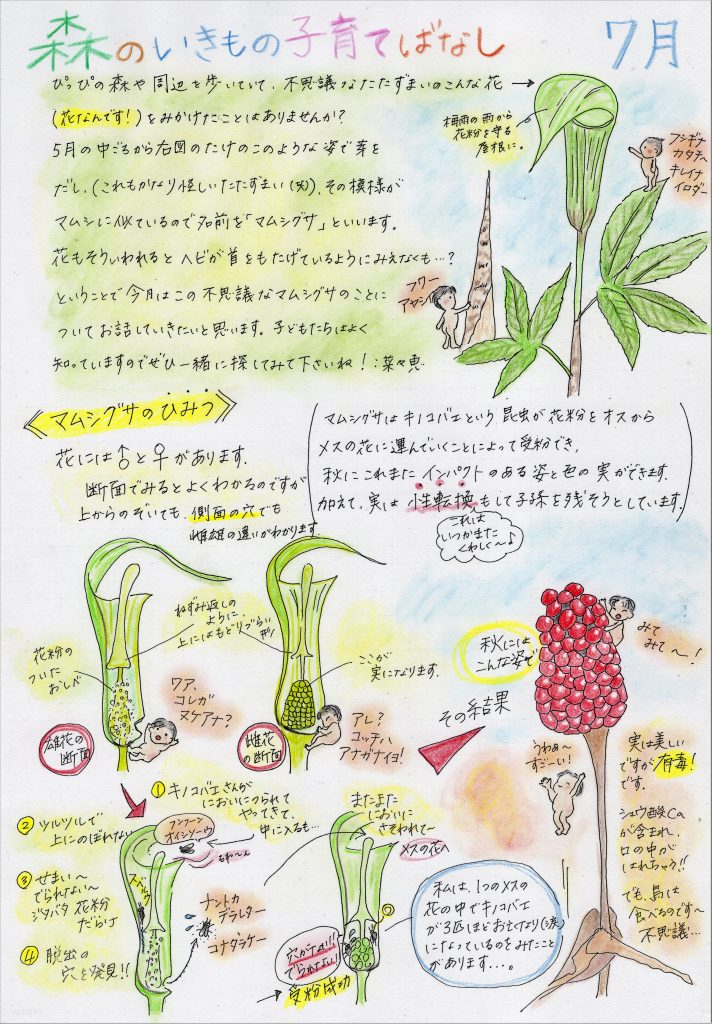 森のいきもの子育てばなし 7月
ぴっぴの森や周辺を歩いていて、不思議なたたずまいのこんな花 →
(花なんです!)をみかけたことはありませんか?
5月の中ごろから右図のたけのこのような姿で芽を
だし、(これもかなり怪しいたたずまい(笑))、その模様が
マムシに似ているので名前を「マムシグサ」といいます。
花もそういわれるとヘビが首をもたげているようにみえなくも…?
ということで今月はこの不思議なマムシグサのことに
ついてお話していきたいと思います。子どもたちはよく
知っていますのでぜひ一緒に探してみて下さいね!:菜々恵
梅雨の雨から
花粉を守る
屋根に。
フシギナ
カタチヘ
キレイナ
イロダー
フワー
アヤシイ
《マムシグサのひみつ》
花には♂と♀があります。
断面でみるとよくわかるのですが
上からのぞいても、側面の穴でも
雌雄の違いがわかります。
マムシグサはキノコバエという昆虫が花粉をオスから
メスの花に運んでいくことによって受粉でき、
秋にこれまたインパクトのある姿と色の実ができます。
加えて、実は性転換もして子孫を残そうとしています。
これは
いつかまた
くわしく~♪
花粉の
ついた
おしべ
ねずみ返しの
ように、
上にはもどりづらい
形
ここが
実になります。
雄花の
断面
ワア、
コレガ
ヌケアナ?
雌花
の断面
アレ?
コッチハ
アナガナイヨ!
その結果
秋には
こんな姿で
みて
みて~!
うわぁ~
すごーい!
実は美しい
ですが有毒!
です。
シュウ酸Ca
が含まれ、
口の中が
はれちゃう!!
でも、鳥は
食べるのです~
不思議…
① キノコバエさんが
においにつられて
やってきて、
中に入るも…
② ツルツルで
上にのぼれない
③ せまい~
でられない~
ジタバタ花粉
だらけ
④ 脱出の
穴を発見!!
フンフーン
オイシソーウ
もわ~ん
ズルッ
ナントカ
デラレター
コナダラケー
またまた
においに
さそわれて~
メスの花へ
穴がナイ!!
でられない!
→ 受粉成功
私は、1つのメスの
花の中でキノコバエ
が3匹ほどお亡くなり(涙)
になっているのをみたこと
があります…。